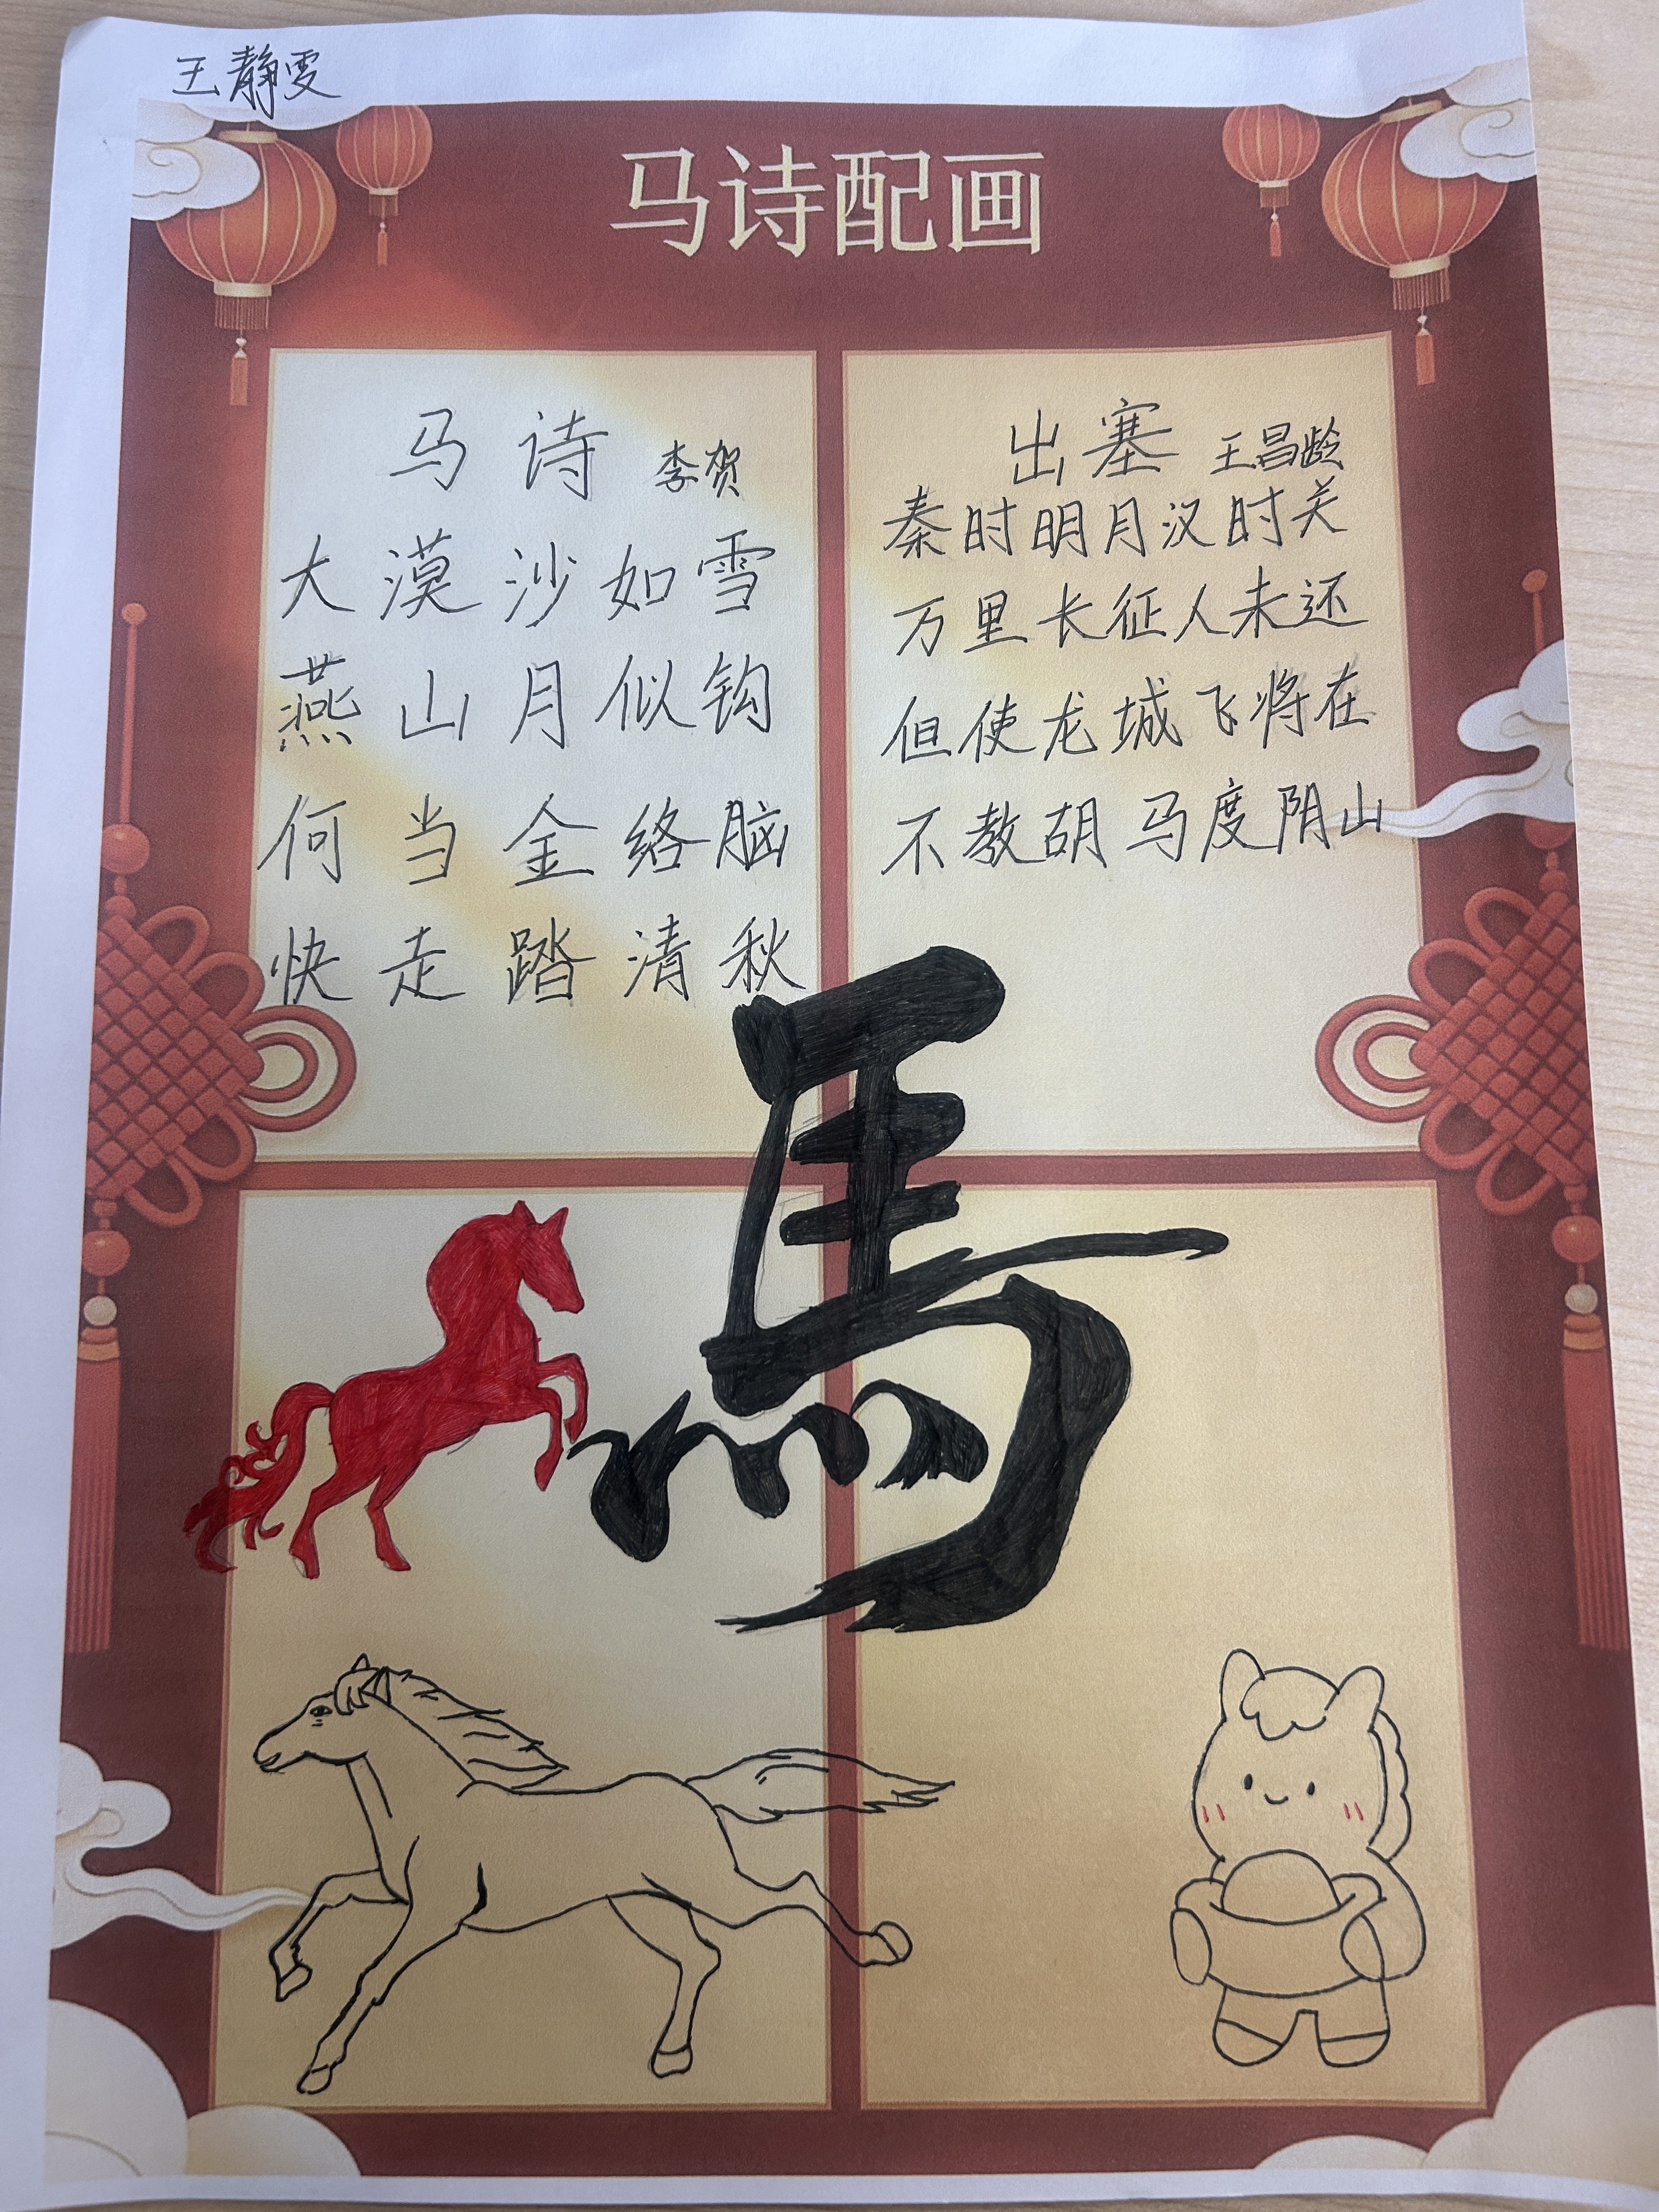 王静雯
马诗配画
马诗 李贺
大漠沙如雪
燕山月似钩
何当金络脑
快走踏清秋
出塞 王昌龄
秦时明月汉时关
万里长征人未还
但使龙城飞将在
不教胡马度阴山
馬